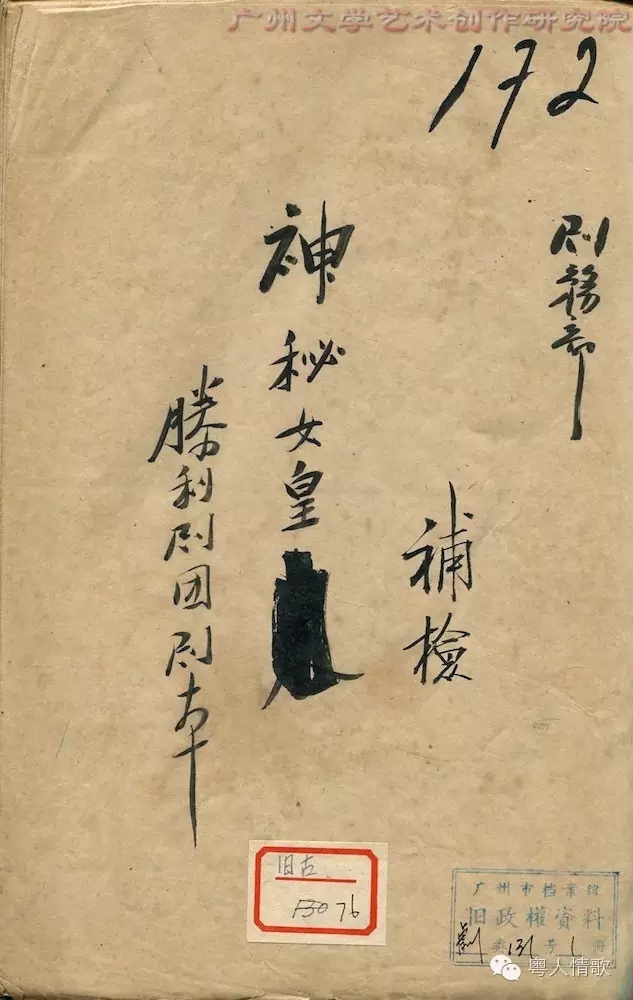 广州文学艺术创作研究院
172
剧務部
補檢
神秘女皇
勝利剧团剧本
旧古
13076
广州市档案馆
旧政權資料
劇 类 131 号 1 册
粤人情歌